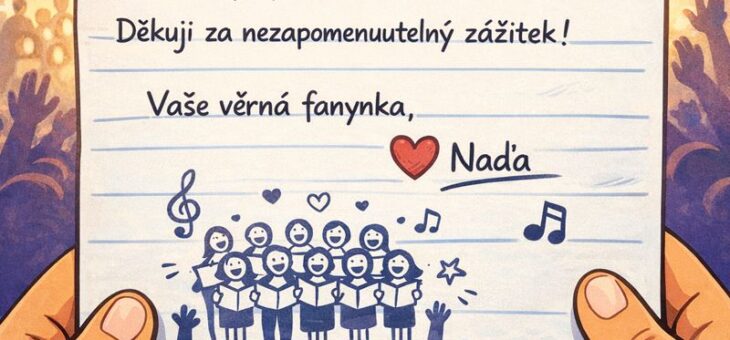 Děkuji za nezapomenuutelný zážitek!
Vaše věrná fanynka,
Naďa